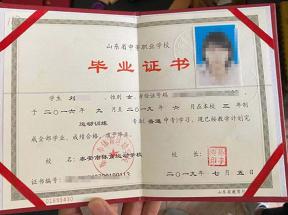 山东省中等职业学校
毕业证书
学生 刘 性别 女 身份证号码
于二〇一六年 九 月至二〇一九年 六 月在本校 三 年制
运动训练 专业(普通中专)学习，现已按教学计划完
成全部学业，成绩合格，准予毕业。
校 名：泰安市体育运动学校 校长：
证书编号：
二〇一九年 七 月 五 日